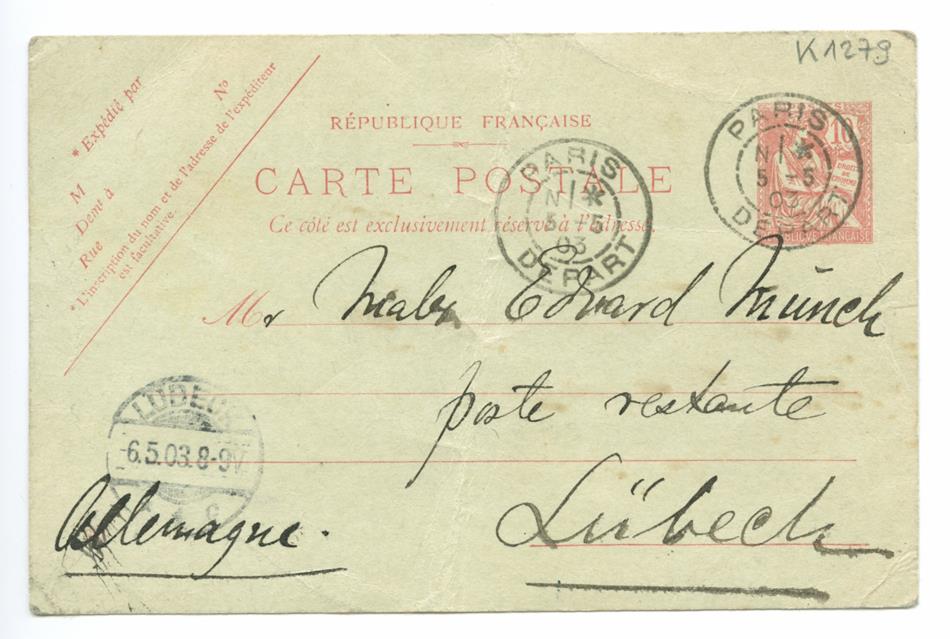 K1279
* Expédié par
M
Nº
Demt à
Rue
*L'inscription du nom et de l'adresse de l'expéditeur
est facultative.
RÉPUBLIQUE FRANÇAISE
CARTE POSTALE
Ce côté est exclusivement réservé à l'adresse.
PARIS
N1 *
5 - 5
03
DÉPART
PARIS
N1 *
5 - 5
03
DÉPART
10
Mr Maler Edvard Münch
poste restante
LÜBECK
6.5.03.8-9V.
c
Lübeck
Allemagne.